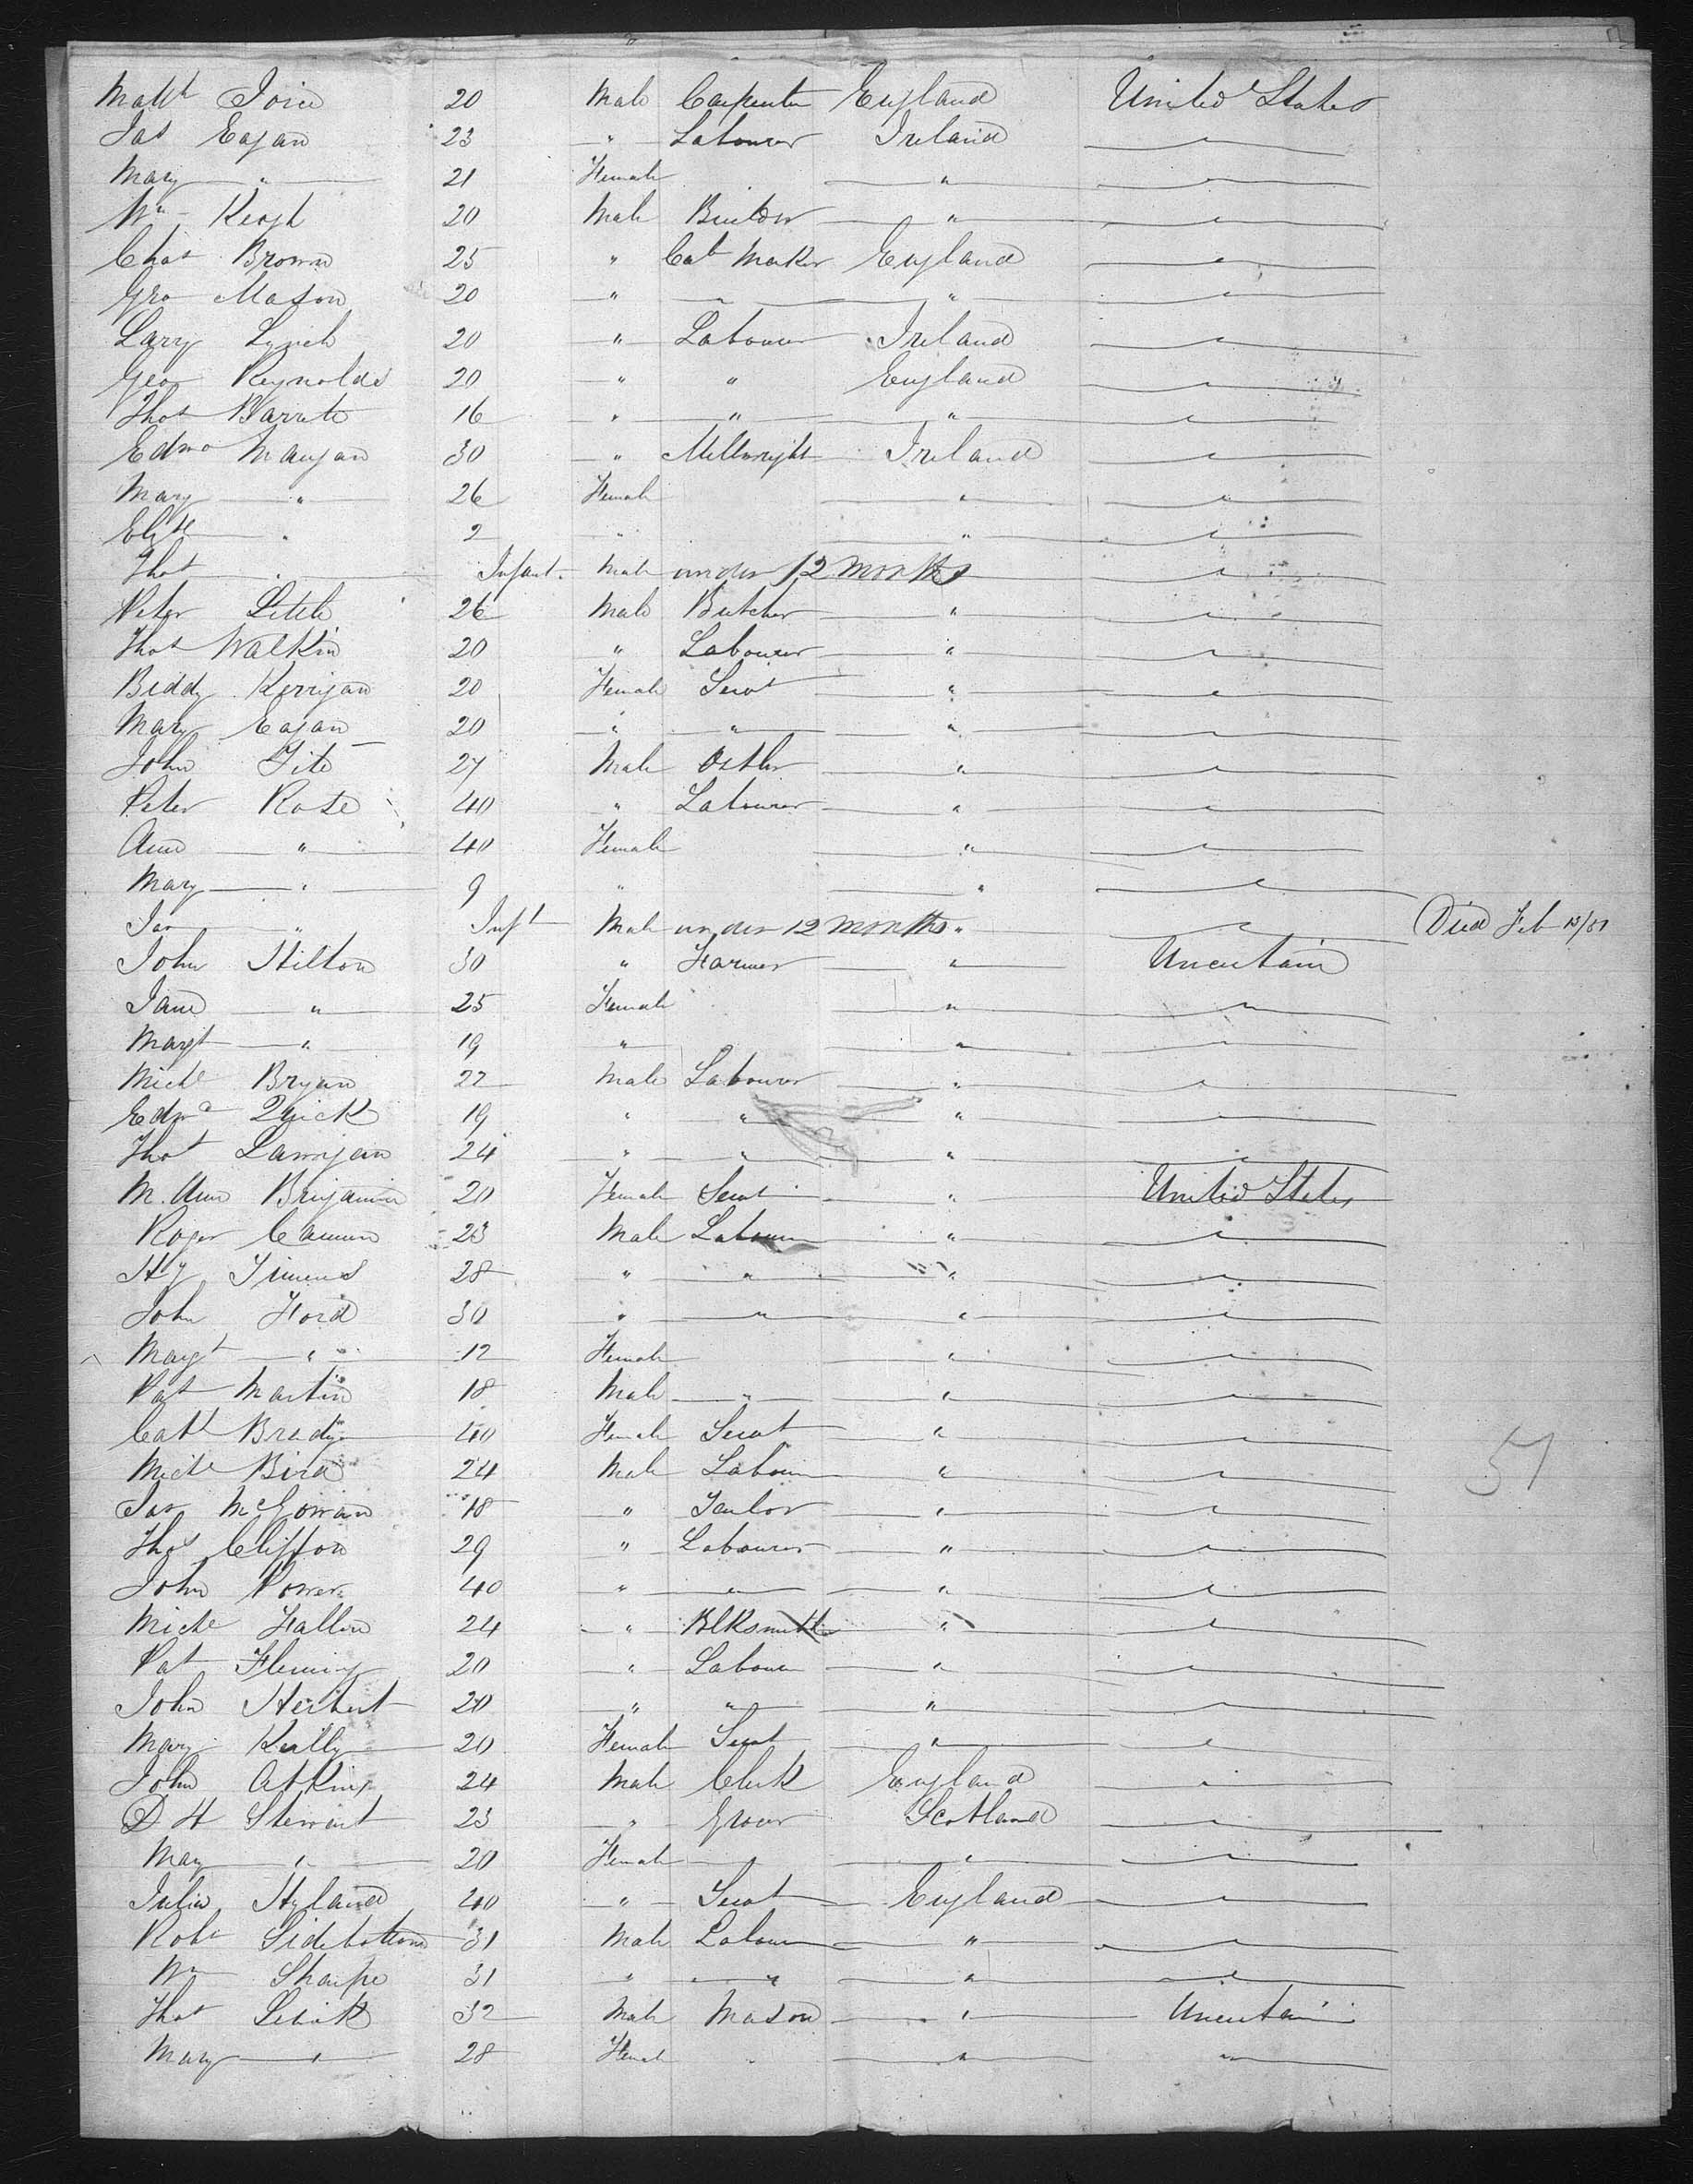 Matth Joice 20 Male Carpenter England United States
Jas Eagan 23 " Labourer Ireland "
Mary " 21 Female " "
Wm Keogh 20 Male " "
Chas Brown 25 " Cabt Maker England "
Geo Mason 20 " " " "
Lary Lynch 20 " Labourer Ireland "
Geo Reynolds 20 " " England "
Thos Barrett 16 " " " "
Edmd Mangan 30 " Millwright Ireland "
Mary " 26 Female " "
Elizth " 2 " " "
Thos " Infant. Male under 12 Months "
Peter Little 26 Male Butcher " "
Thos Walkin 20 " Labourer " "
Biddy Kerrigan 20 Female Servt " "
Mary Eagan 20 " " " "
John Tite 27 Male Ostler " "
Peter Rose 40 " Labourer " "
Ann " 40 Female " "
Mary " 9 " " "
Jas " Inft Male under 12 Months " " Died Feb 13/51
John Hilton 30 " Farmer " Uncertain
Jane " 25 Female " "
Margt " 19 " " "
Michl Bryan 22 Male Labourer " "
Edwd Quick 19 " " " "
Thos Larrigan 24 " " " "
M. Ann Benjamin 20 Female Servt " United States
Roger 23 Male Labourer " "
Hy Timens 28 " " " "
John Ford 30 " " " "
Margt " 12 Female " "
Pat Martin 18 Male " " "
Cath Brady 40 Female Servt " "
Michl Bird 24 Male Labourer " "
Jas McGowan 18 " Tailor " "
Thos Clifton 29 " Labourer " "
John Power 40 " " " "
Michl Fallon 24 " Blksmith " "
Pat Fleming 20 " Labourer " "
John Herbert 20 " " " "
Mary Kelly 20 Female Servt " "
John Atkins 24 Male Clerk England "
D H Stewart 23 " Grocer Scotland "
Mary " 20 Female " "
Julia Hyland 40 " Servt England "
Robt Sidebottom 31 Male Labourer " "
Wm Sharpe 31 " " " "
Thos 32 Male Mason " Uncertain
Mary " 28 Female " "